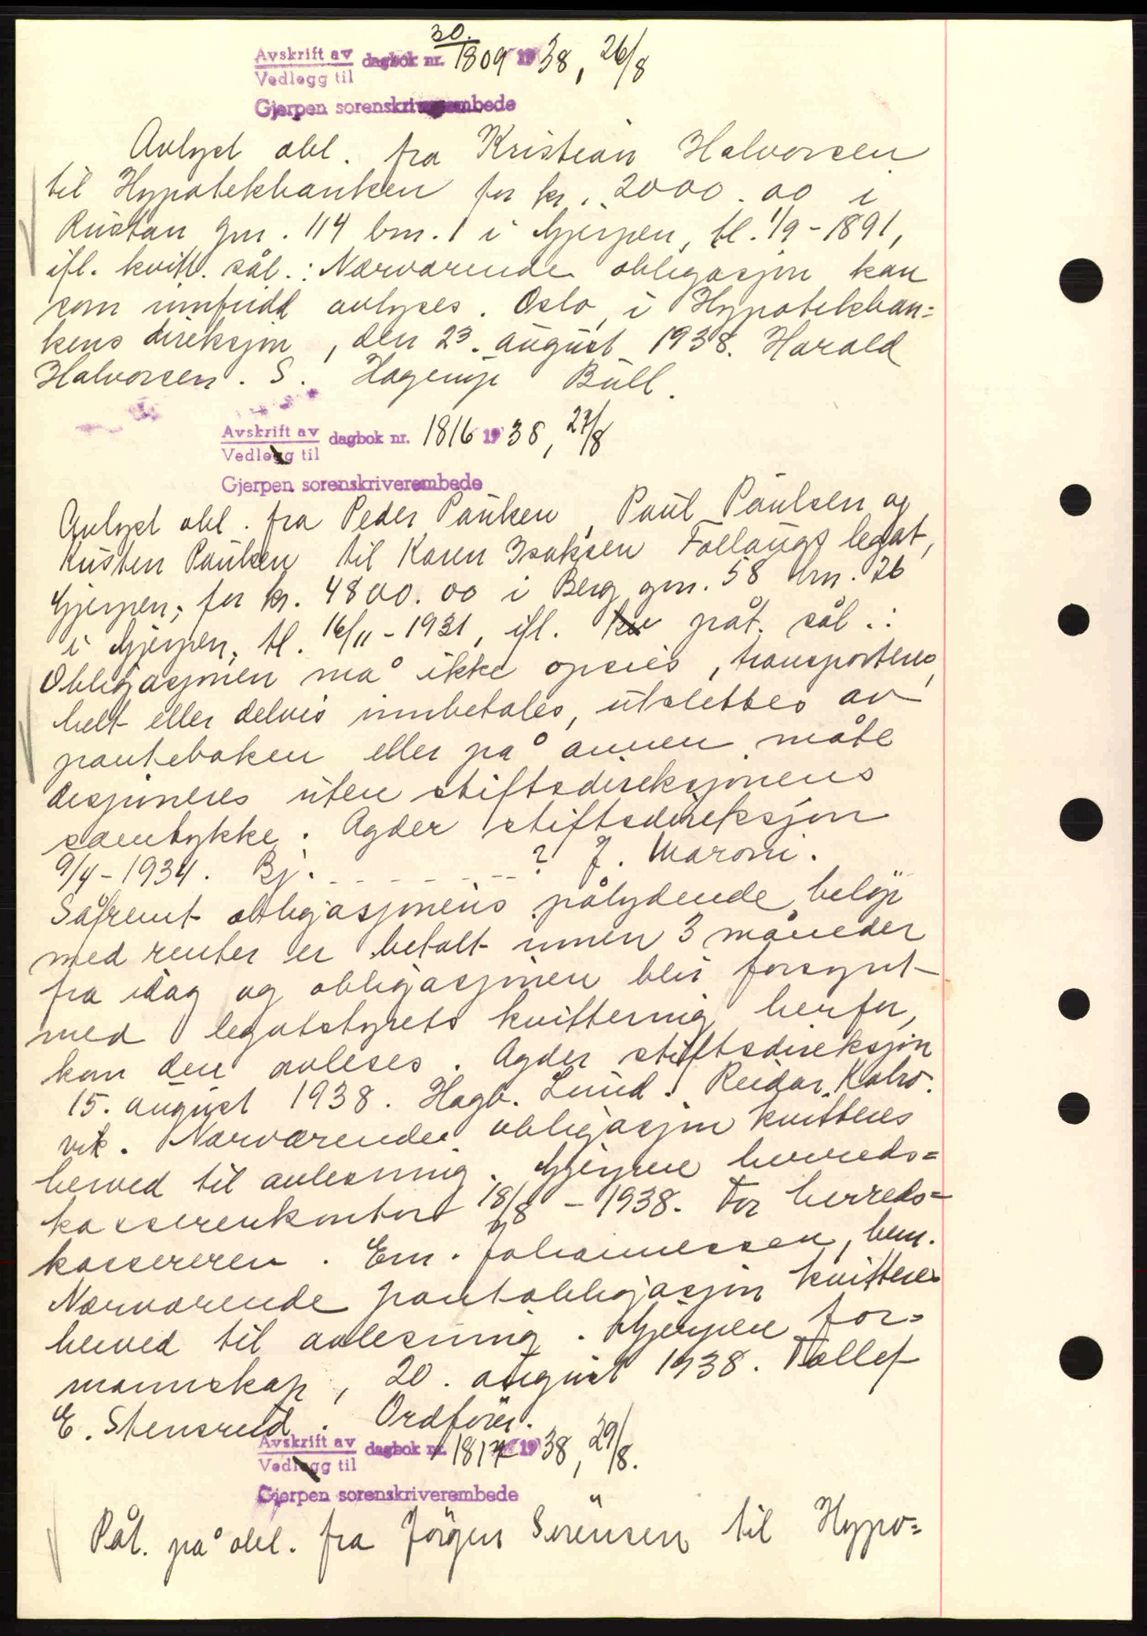 30.
Avskrift av dagbok nr. 1809 1938, 26/8
Vedlegg til
Gjerpen sorenskriverembede
Avlyst obl. fra Kristian Halvorsen
til Hypotekbanken for kr. 2000.00 i
Rustan gnr. 114 bnr. 1 i Gjerpen, tl. 1/9-1891,
ifl. kvitt. sål.: Nærværende obligasjon kan
som innfridd avlyses. Oslo, i Hypotekban=
kens direksjon, den 23. august 1938. Harald
Halvorsen. S. Hagerup Bull.
Avskrift av dagbok nr. 1816 1938, 27/8
Vedlegg til
Gjerpen sorenskriverembede
Avlyst obl. fra Peder Paulsen, Paul Paulsen og
Kristen Paulsen til Karen Isaksen Follaugs legat,
Gjerpen, for kr. 4800.00 i Berg gnr. 58 bnr. 26
i Gjerpen, tl. 16/11-1931, ifl. påt. sål.:
Obligasjonen må ikke opsies, transporteres,
helt eller delvis innbetales, utslettes av
panteboken eller på annen måte
disponeres uten stiftsdireksjonens
samtykke. Agder stiftsdireksjon
9/4-1934. Bj. - - - - - - - ? J. Maroni.
Såfremt obligasjonens pålydende beløp
med renter er betalt innen 3 måneder
fra idag og obligasjonen blir forsynt
med legatstyrets kvittering herfor,
kan den avleses. Agder stiftsdireksjon
15. august 1938. Hagb. Lund. Reidar Kalvs.
vik. Nærværende obligasjon kvitteres
herved til avlesning. Gjerpen herreds=
kassererkontor 18/8-1938. For herreds=
kassereren. Em. Johannessen, bem.
Nærværende pantobligasjon kvitteres
herved til avlesning. Gjerpen for=
mannskap, 20. august 1938. Tollef
E. Stensrud. Ordfører.
Avskrift av dagbok nr. 1817 1938, 29/8.
Vedlegg til
Gjerpen sorenskriverembede
Påt. på obl. fra Jörgen Sörensen til Hypo=